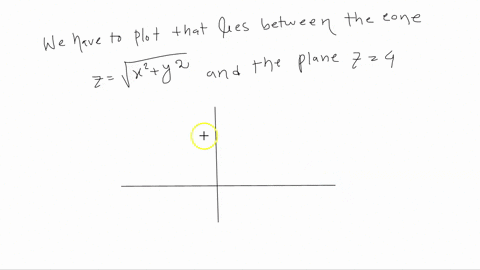 We have to plot that lies between the cone
z = √x²+y² and the plane z = 4